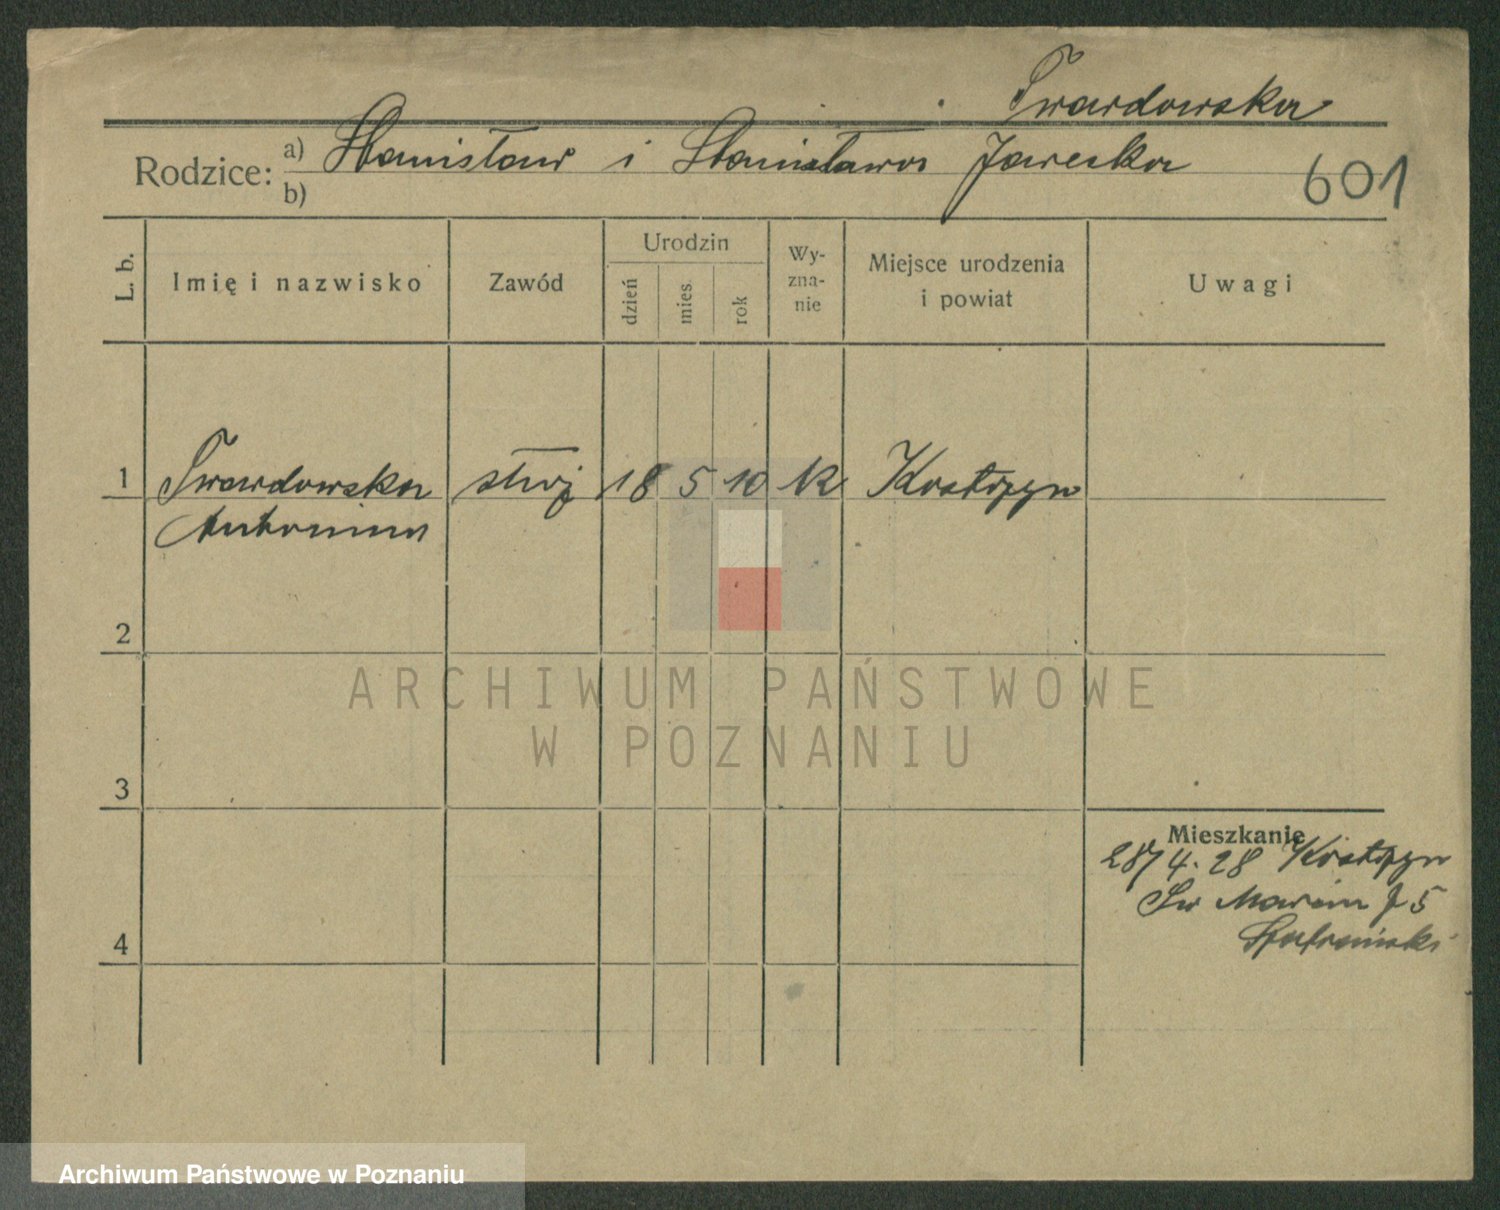 Twardowska
Rodzice: a) Stanisław i Stanisława Jarecka
b)
601
L. b.
Imię i nazwisko
Zawód
Urodzin
dzień
mies.
rok
Wy-
zna-
nie
Miejsce urodzenia
i powiat
Uwagi
1 Twardowska służ 18 5 10 k Kostrzyn
Antonina
2
3
4
Mieszkanie
28/4. 28 Kostrzyn
Św Marcin 75
ARCHIWUM PAŃSTWOWE
W POZNANIU
Archiwum Państwowe w Poznaniu